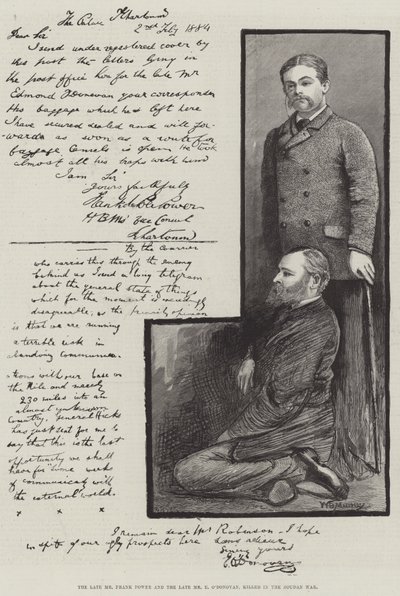 The Palace Khartoum
2nd Feby 1884
Dear Sir
I send under registered cover by
this post the letters lying in
the post office here for the late Mr
Edmond O'Donovan your correspondent
His baggage which he left here
I have secured sealed and will for-
ward as soon as a route for
baggage camels is open He took
almost all his traps with him
I am Sir
Yours faithfully
Frank de la Power
HBMs Consul
Khartoum
By the carrier
who carries this through the enemy
behind us I send a long telegram
about the general state of things
which for the moment is exceedingly
disagreeable, as the opinion
is that we are running
a terrible risk in
abandoning communica-
tions with our base on
the Nile and
230 miles into an
almost unknown
country. General Hicks
has just sent for me to
say that this is the last
opportunity we shall
have for "some weeks"
of communicating with
the external world.
x x x
I remain dear Mr Robinson - I hope
in spite of our ugly prospects here
yours
E. O'Donovan
THE LATE MR. FRANK POWER AND THE LATE MR. E. O'DONOVAN, KILLED IN THE SOUDAN WAR.